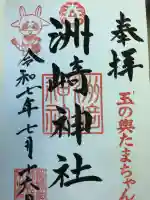 奉拝
玉の輿たまちゃん
洲崎神社
令和七年七月十六日